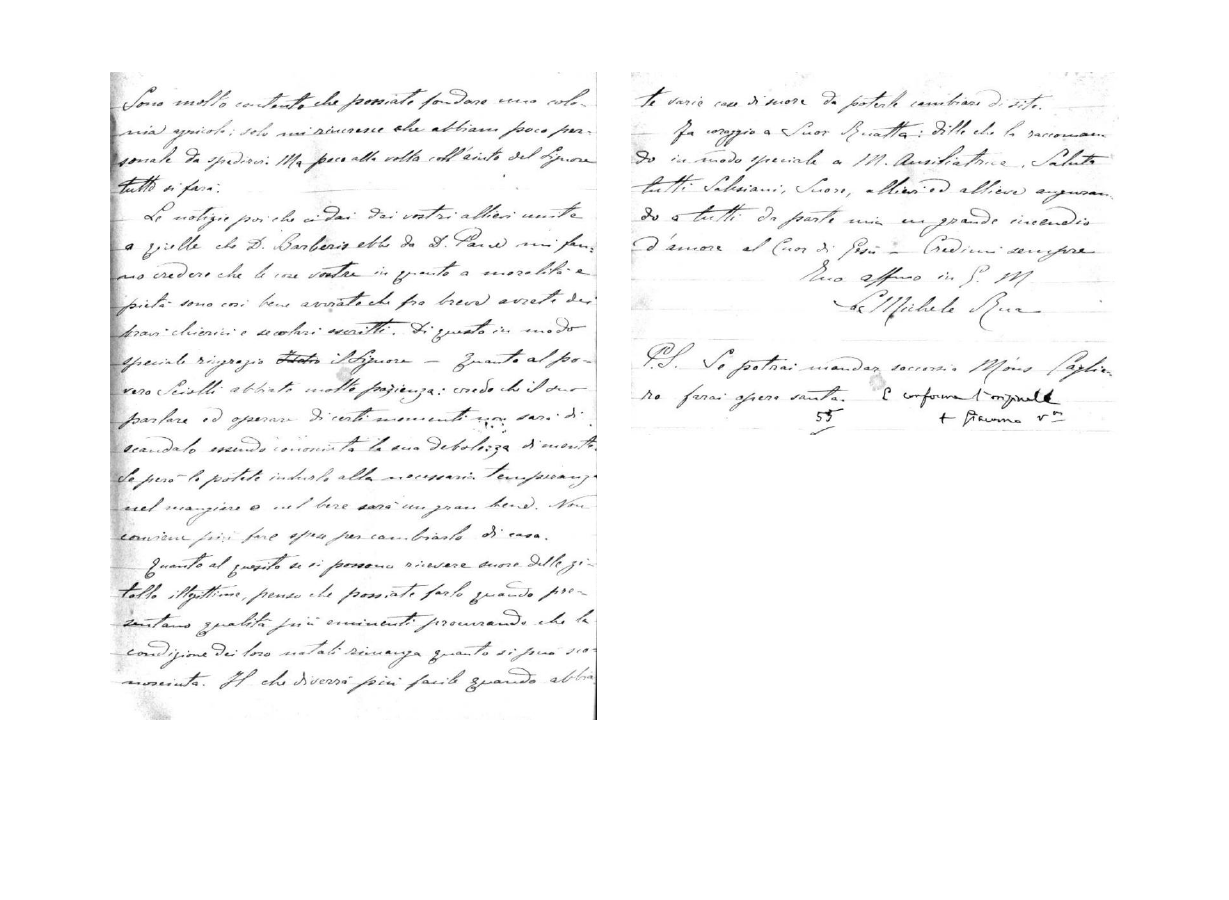 Sono molto contento che possiate fondare una colo-
nia agricola; solo mi rincresce che abbiam poco per-
sonale da spedirvi. Ma poco alla volta coll'aiuto del Signore
tutto si farà.
Le notizie poi che ci dai dei vostri allievi unite
a quelle che D. Barberis ebbe da D. Pane mi fan-
no credere che le cose vostre in quanto a moralità e
pietà sono così bene avviate che fra breve avrete dei
bravi chierici e secolari ascritti. Di questo in modo
speciale ringrazio il Signore — Quanto al po-
vero Sciolli abbiate molta pazienza: credo che il suo
parlare ed operare di certi momenti non sarà di
scandalo essendo conosciuta la sua debolezza di mente.
Se però lo potete indurlo alla necessaria temperanza
nel mangiare e nel bere sarà un gran bene. Non
conviene più fare spese per cambiarlo di casa.
Quanto al quesito se si possono ricevere suore delle zi-
telle illegittime, penso che possiate farlo quando pre-
sentano qualità più eminenti procurando che la
condizione dei loro natali rimanga quanto si può sco-
nosciuta. Il che diverrà più facile quando abbia-
te varie case di suore da poterle cambiare di sito.
Fa coraggio a Suor : dille che la raccoman
do in modo speciale a M. Ausiliatrice. Saluta
tutti Salesiani, Suore, allievi ed allieve auguran-
do a tutti da parte mia un grande incendio
d'amore al Cuor di Gesù — Credimi sempre
Tuo affmo in G. M
Sac Michele Rua
P.S. Se potrai mandar soccorsi a Mons Caglie-
ro farai opera santa. È conforme l'originale
55 + Giacomo v